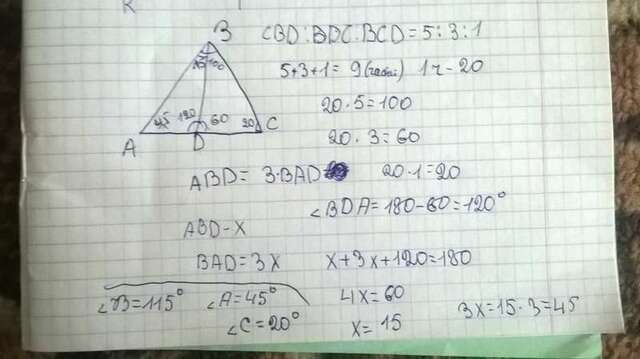 K
B
CBD:BDC:BCD = 5:3:1
5+3+1 = 9 (частi) 1ч - 20
100
120
60
45
20
A
D
C
20·5=100
20·3=60
ABD = 3·BAD
20·1=20
∠BDA=180-60=120°
ABD-X
BAD=3X
X+3X+120=180
∠B=115°
∠A=45°
4X=60
3X=15·3=45
∠C=20°
X=15